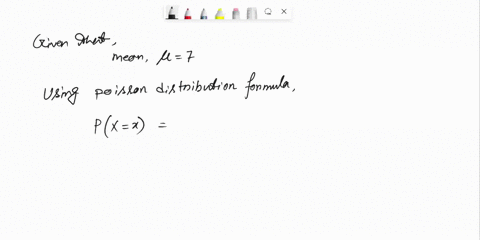 Given that,
mean, μ = 7
Using poisson distribution formula,
P(X = x) =